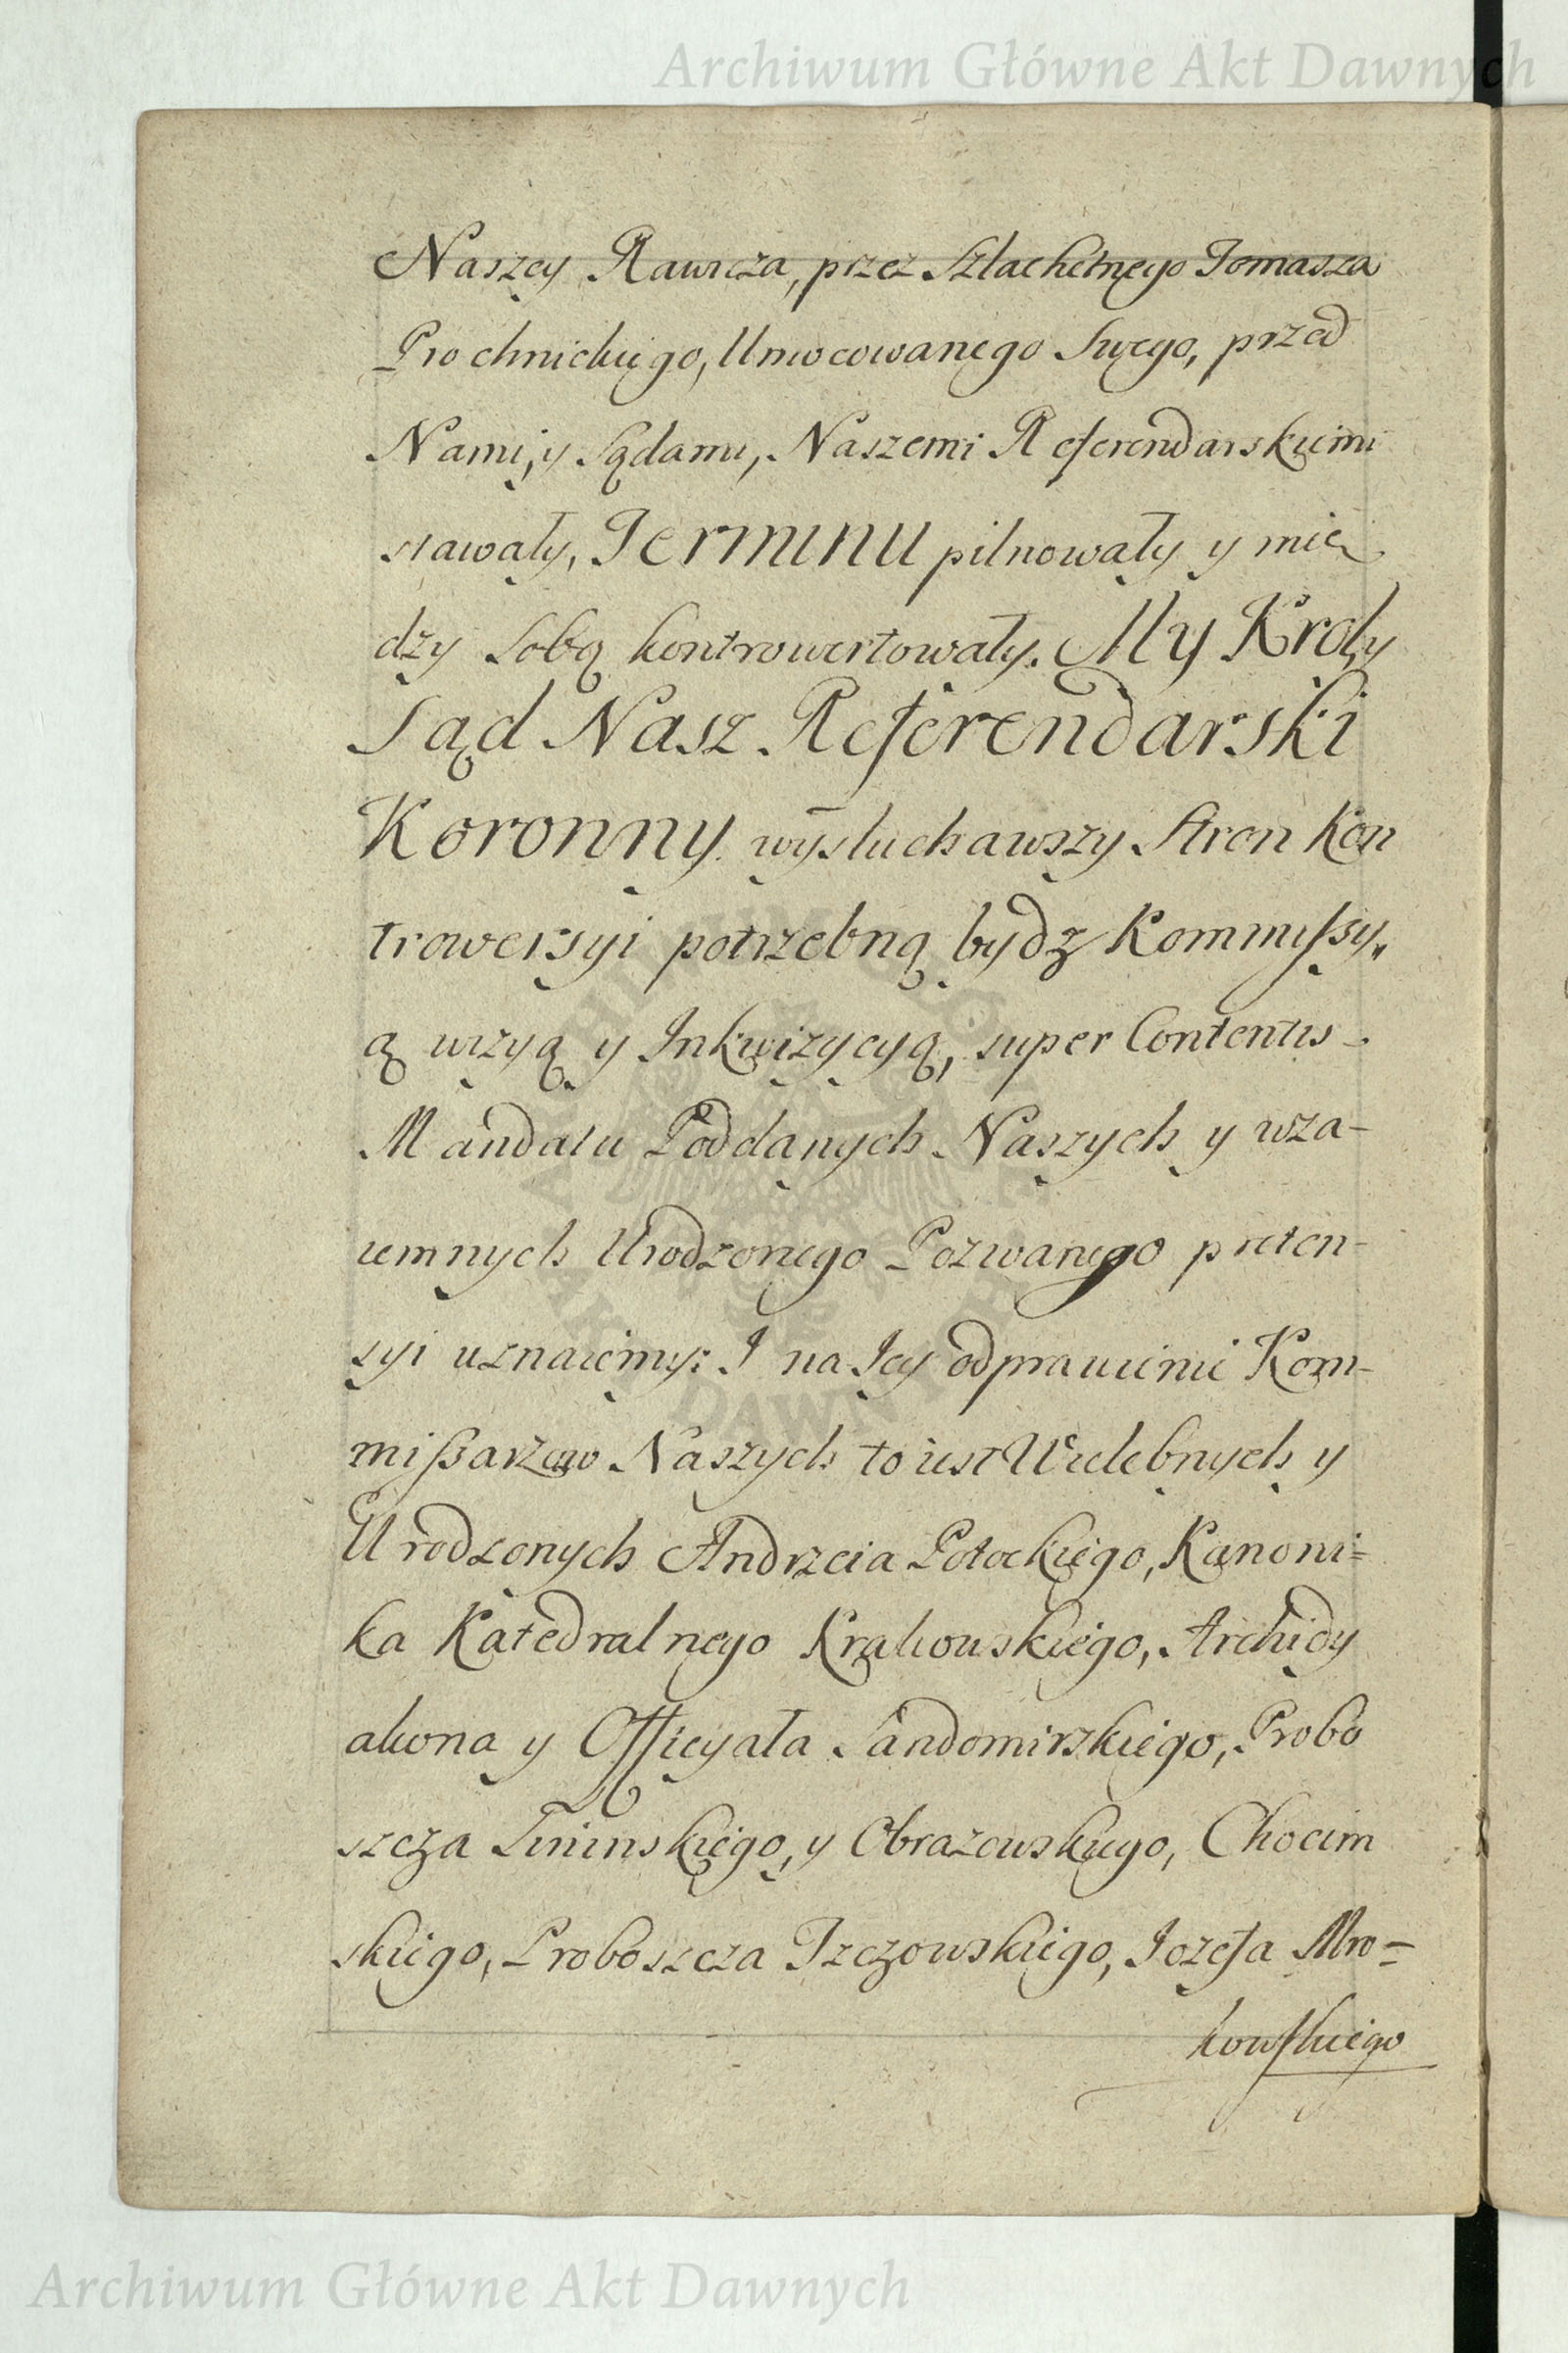 Archiwum Główne Akt Dawnych
Naszey Rawicza, przez Szlachetnego Tomasza
Prochnickiego, Umocowanego Swego, przed
Nami, y Sądami, Naszemi Referendarskiemi
stawały, Terminu pilnowały y mię
dzy Sobą kontrowertowały. My Krol y
Sąd Nasz Referendarski
Koronny wysłuchawszy Stron kon
trowersyi potrzebną bydz Kommissy„
ą wizyą y Inkwizycyą, super Contentis
Mandatu Poddanych Naszych y wza-
iemnych Urodzonego Pozwanego preten-
syi uznaiemy: I na Jey odprawienie Kom-
missarzow Naszych to iest Wielebnych y
Urodzonych Andrzeia Potockiego, Kanoni=
ka Katedralnego Krakowskiego, Archidy
akona y Officyała Sandomirskiego, Probo
szcza y Obrazowskiego, Chocim
skiego, Proboszcza Tczowskiego, Jozefa Mro=
kowskiego
Archiwum Główne Akt Dawnych